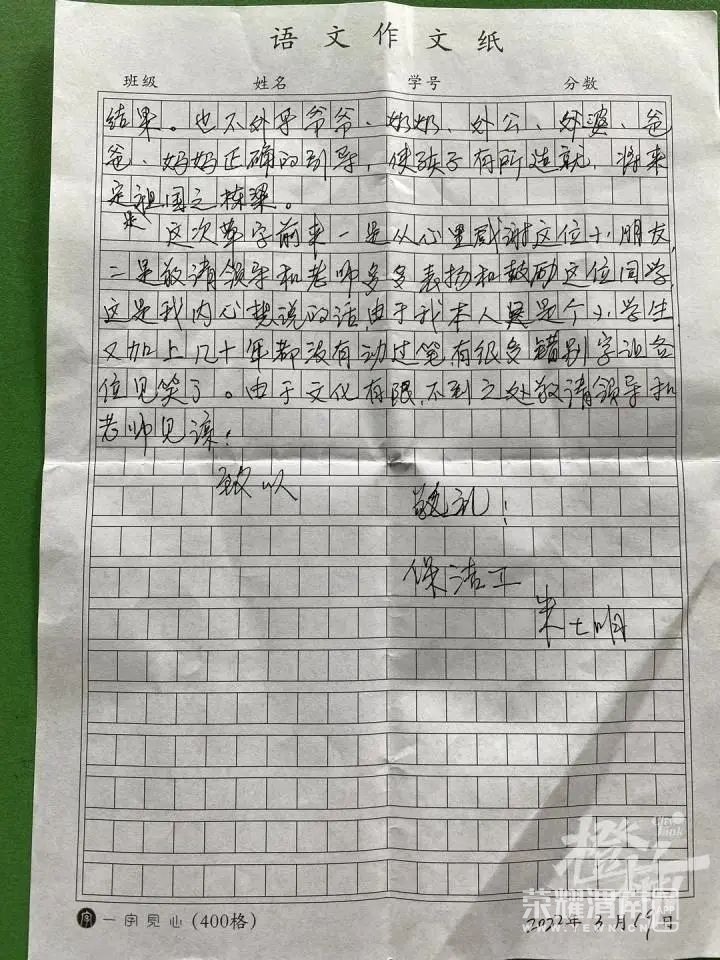 语文作文纸
班级 姓名 学号 分数
结果。也不外乎爷爷、奶奶、外公、外婆、爸
爸、妈妈正确的引导，使孩子有所造就，将来
定是祖国之栋梁。
这次草字前来一是从心里感谢这位小朋友，
二是敬请领导和老师多多表扬和鼓励这位同学，
这是我内心想说的话由于我本人是个小学生
又加上几十年都没有动过笔有很多错别字让各
位见笑了。由于文化有限，不到之处敬请领导和
老师见谅！
致以
敬礼！
保洁工
朱士明
一字见心(400格)
2022年3月19日
橙
荣耀渭南网
WWW.TEWKN.COM